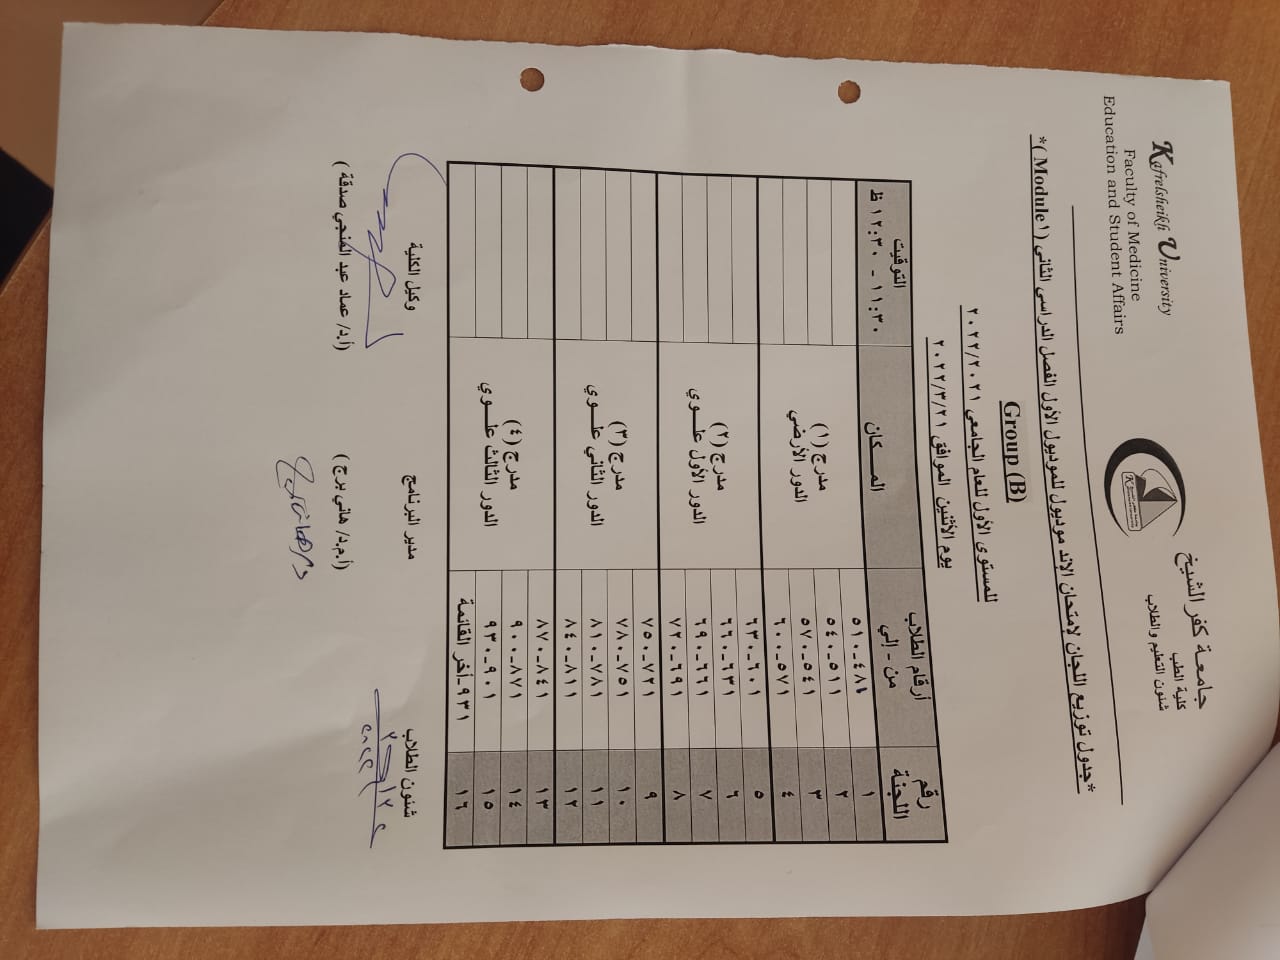 Kafrelsheikh University
Faculty of Medicine
Education and Student Affairs
جامعة كفر الشيخ
كلية الطب
شئون التعليم والطلاب
*جدول توزيع اللجان لإمتحان الاند موديول للموديول الأول الفصل الدراسي الثاني (Module ١)*
للمستوى الأول للعام الجامعي ٢٠٢٢/٢٠٢١
Group (B)
يوم الأثنين الموافق ٢٠٢٢/٣/٢١
رقم اللجنة | أرقام الطلاب من - إلي | المـكان | التوقيت ١١:٣٠ - ١٢:٣٠ ظ
١ | ٤٨١-٥١٠ | مدرج (١) الدور الأرضي
٢ | ٥١١-٥٤٠
٣ | ٥٤١-٥٧٠
٤ | ٥٧١-٦٠٠
٥ | ٦٠١-٦٣٠ | مدرج (٢) الدور الأول علـــوي
٦ | ٦٣١-٦٦٠
٧ | ٦٦١-٦٩٠
٨ | ٦٩١-٧٢٠
٩ | ٧٢١-٧٥٠ | مدرج (٣) الدور الثاني علـــوي
١٠ | ٧٥١-٧٨٠
١١ | ٧٨١-٨١٠
١٢ | ٨١١-٨٤٠
١٣ | ٨٤١-٨٧٠ | مدرج (٤) الدور الثالث علـــوي
١٤ | ٨٧١-٩٠٠
١٥ | ٩٠١-٩٣٠
١٦ | ٩٣١-أخر القائمة
شئون الطلاب
مدير البرنامج
وكيل الكلية
(أ.م.د/ هاني برج )
(أ.د/ عماد عبد المنجي صدقة )